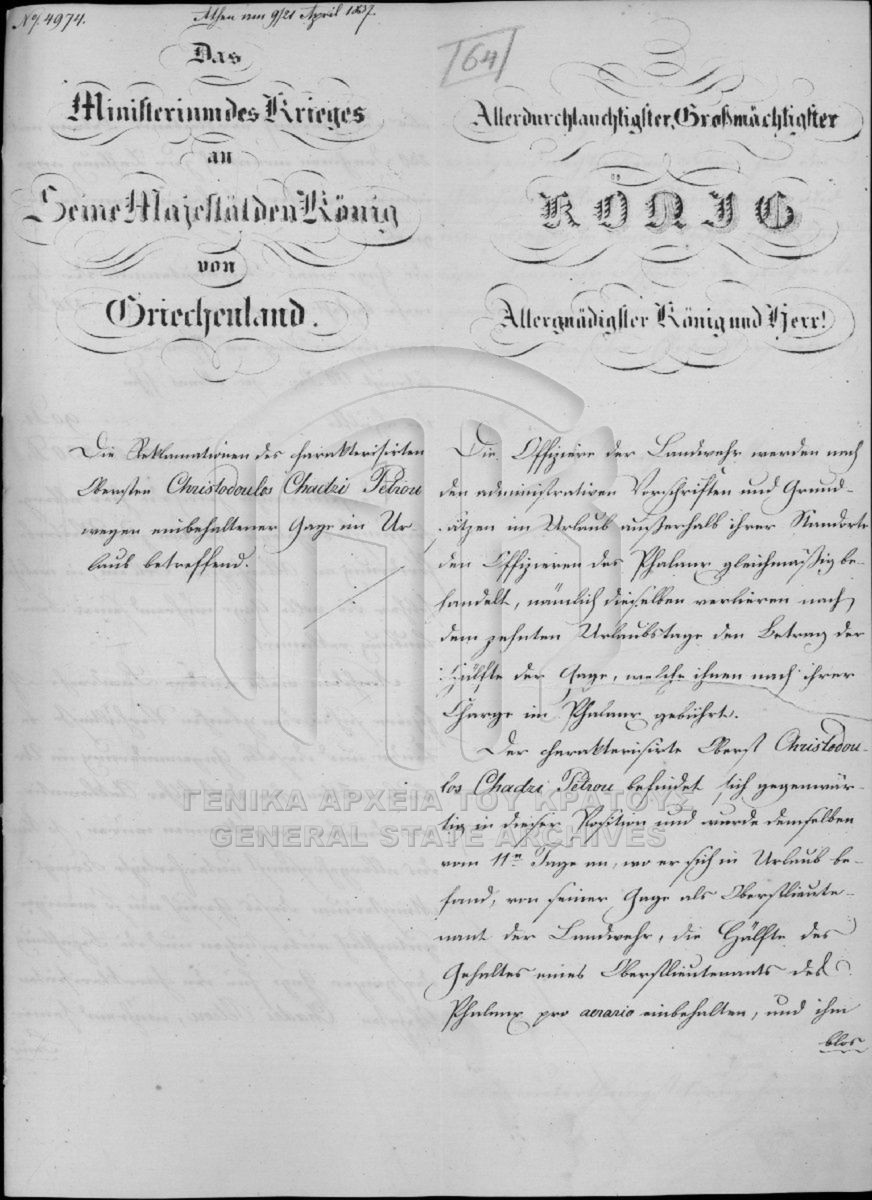 No. 4974.
Athen am 9/21 April 1837.
Das
Ministerium des Krieges
an
Seine Majestät den König
von
Griechenland.
Die Reklamationen des charakterisirten
Obersten Christodoulos Chadzi Petrou
wegen einbehaltener Gage im Ur-
laub betreffend.
64
Allerdurchlauchtigster, Großmächtigster
KÖNIG
Allergnädigster König und Herr!
Die Offiziere der Landwehr werden nach
den administrativen Vorschriften und Grund-
sätzen im Urlaub außerhalb ihrer Standorte
den Offizieren des Phalanx gleichmäßig be-
handelt, nämlich dieselben verlieren nach
dem zehnten Urlaubstage den Betrag der
Hälfte der Gage, welche ihnen nach ihrer
Charge im Phalanx gebührte.
Der charakterisirte Oberst Christodou-
los Chadzi Petrou befindet sich gegenwär-
tig in dieser Position und wurde demselben
vom 11ten Tage an, wo er sich in Urlaub be-
fand, von seiner Gage als Oberstlieute-
nant der Landwehr, die Hälfte des
Gehaltes eines Oberstlieutenants des
Phalanx pro aerario einbehalten, und ihm
blos
ΓΕΝΙΚΑ ΑΡΧΕΙΑ ΤΟΥ ΚΡΑΤΟΥΣ
GENERAL STATE ARCHIVES